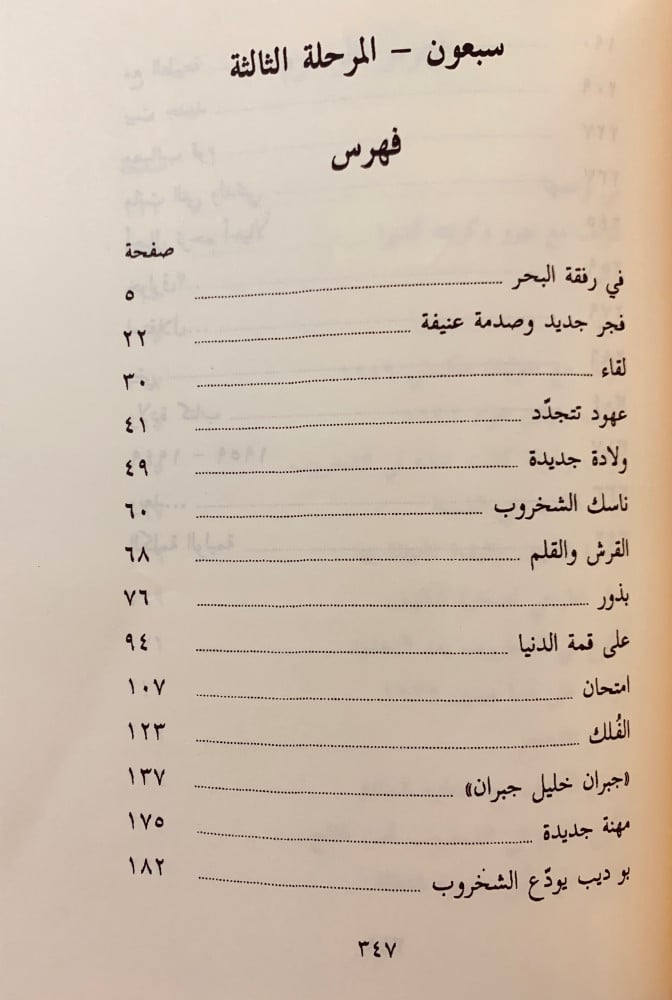 سبعون – المرحلة الثالثة
فهرس
صفحة
في رفقة البحر ........ ٥
فجر جديد وصدمة عنيفة ........ ٢٢
لقاء ........ ٣٠
عهود تتجدّد ........ ٤١
ولادة جديدة ........ ٤٩
ناسك الشخروب ........ ٦٠
القرش والقلم ........ ٦٨
بذور ........ ٧٦
على قمة الدنيا ........ ٩٤
امتحان ........ ١٠٧
الفُلك ........ ١٢٣
«جبران خليل جبران» ........ ١٣٧
مهنة جديدة ........ ١٧٥
بو ديب يودّع الشخروب ........ ١٨٢
٣٤٧